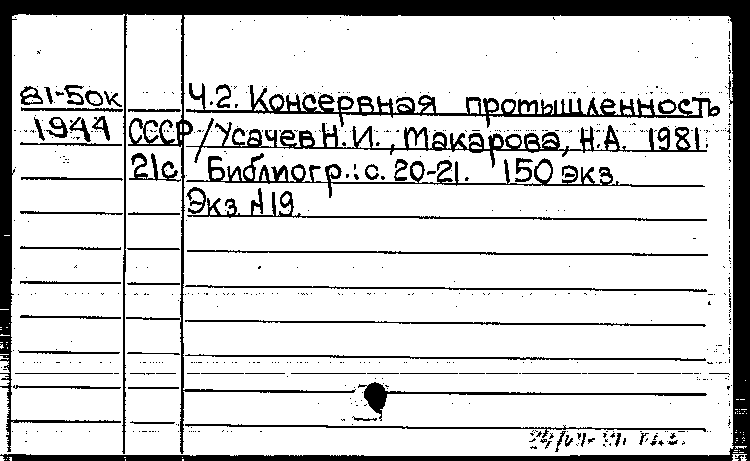 81-5ок Ч.2. Консервная промышленность
1944 СССР /Усачев Н.И., Макарова, Н.А. 1981.
21с. Библиогр.: с. 20-21. 150 экз.
Экз. №19.